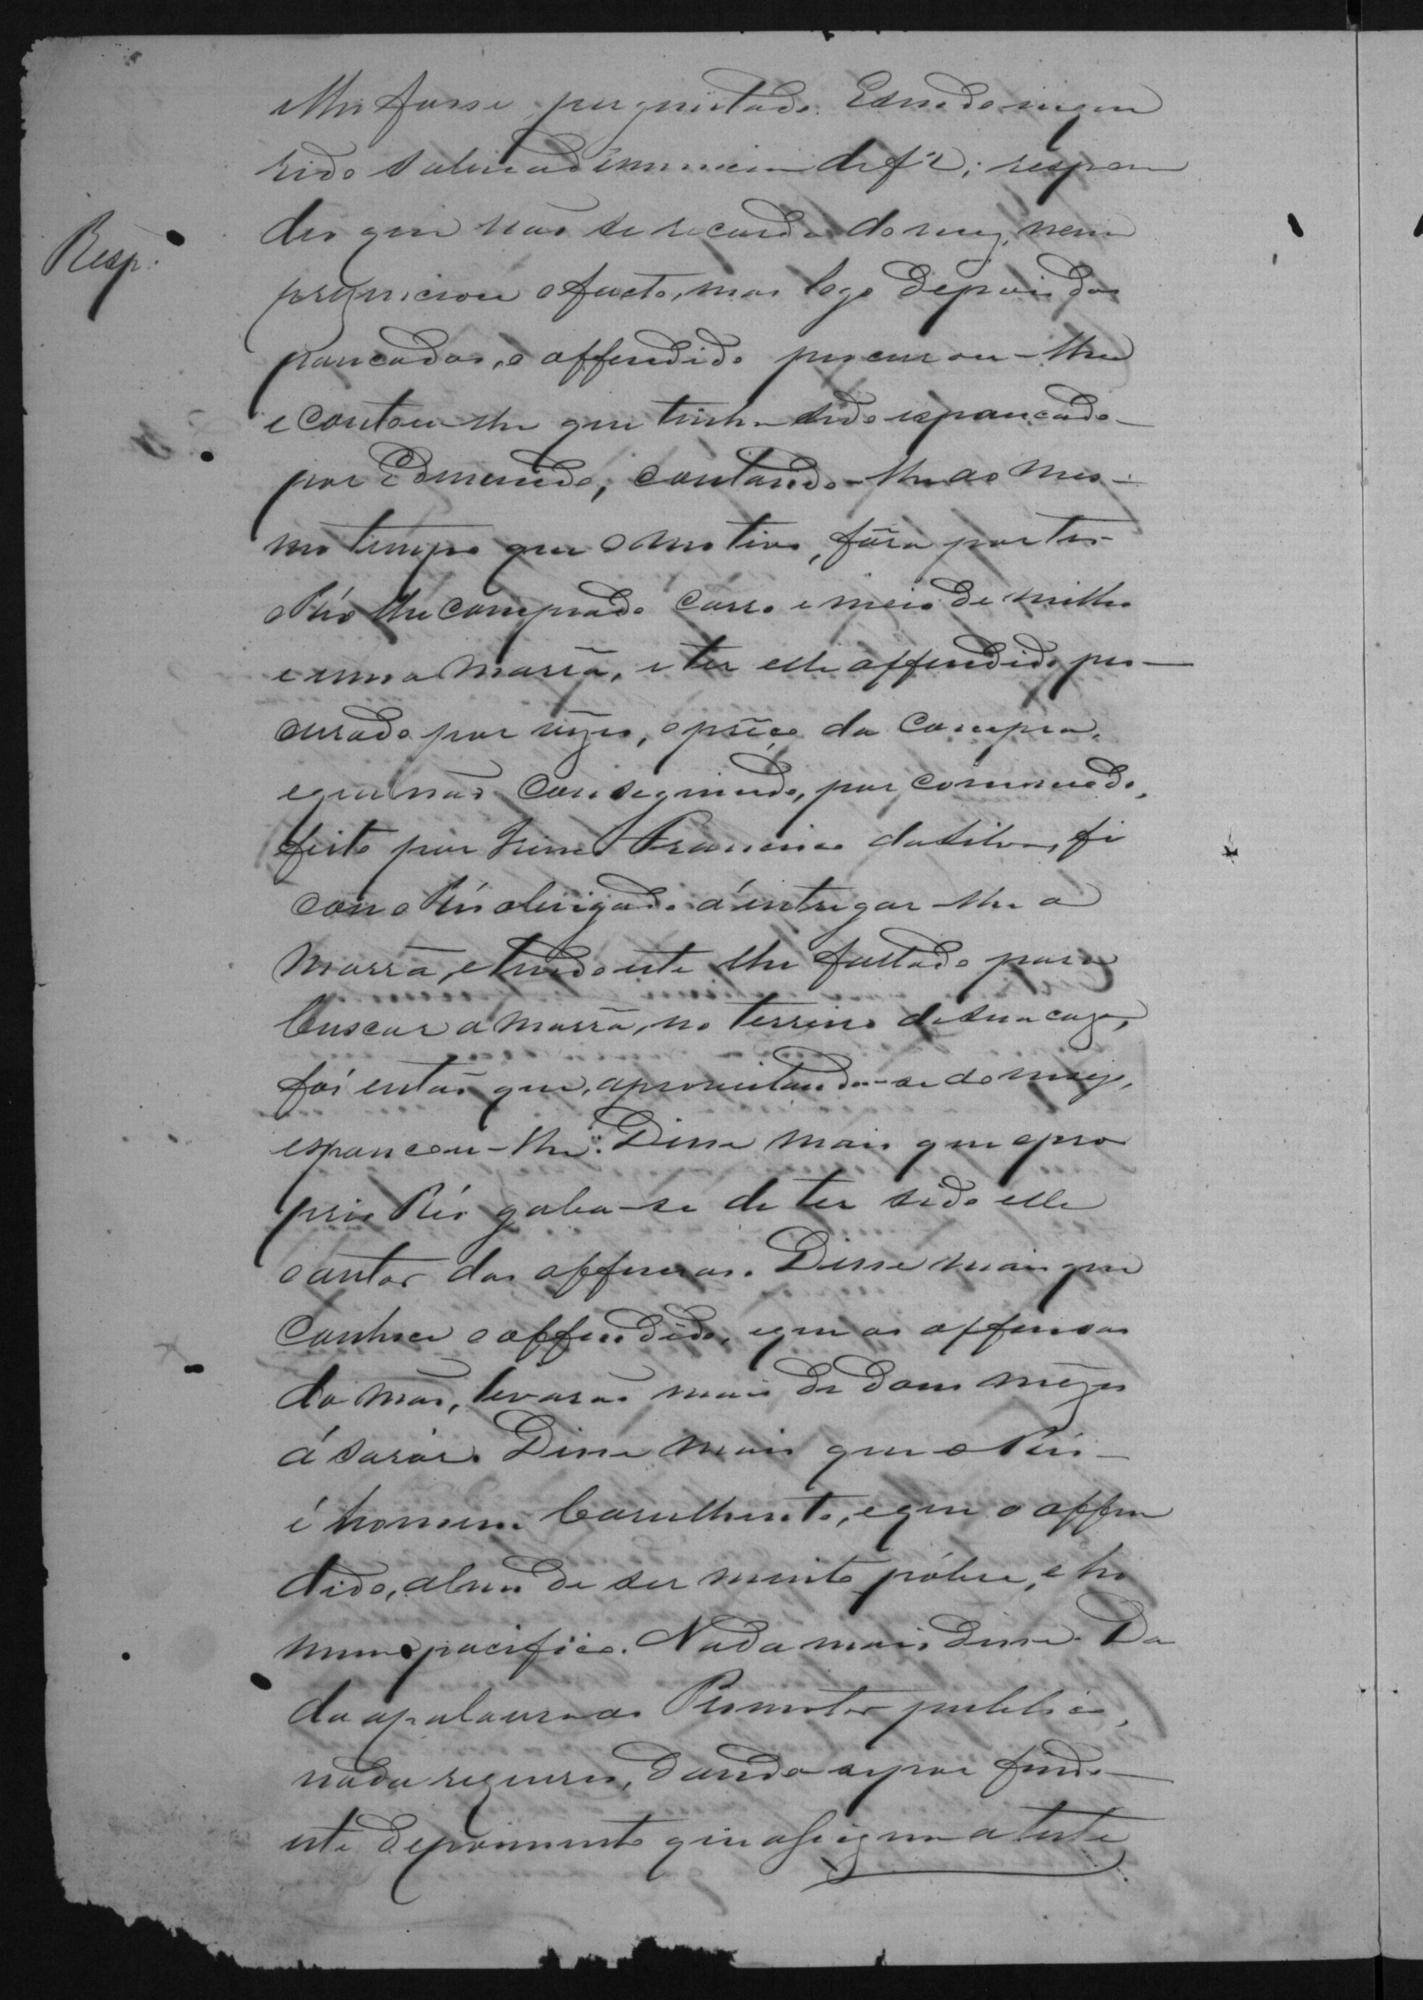 lhe fosse perguntado. E sendo inque
rido sobre a denuncia de f 2, respon
Resp.
deu que não se recorda do mez, nem
presenciou o facto, mas logo depois das
pancadas, o offendido procurou-lhe
e contou-lhe que tinha sido espancado
por Edmundo, contando-lhe ao mes-
mo tempo que o motivo, fôra por ter
o Réo lhe comprado carro e meio de milho
e uma marrã, e ter elle offendido pro-
curado por vezes, o preço da compra,
e que não conseguindo, por commodo,
feito por Francisco da Silva, fi
cou o Réo obrigado á entregar-lhe a
marrã, e tendo este lhe faltado para
buscar a marrã, no terreno de sua caza,
foi então que, aproveitando-se do ensejo,
espancou-lhe. Disse mais que o pro
prio Réo gaba-se de ter sido elle
o autor das offensas. Disse mais que
conhece o offendido, e que as offensas
da mão, levarão mais de dous mezes
á sarar. Disse mais que o Réo
é homem barulhento, e que o offen
dido, alem de ser muito póbre, é ho
mem pacifico. Nada mais disse. Da
da a palavra ao Promotor publico,
nada requereu, dando-se por findo
este depoimento que assigna a teste